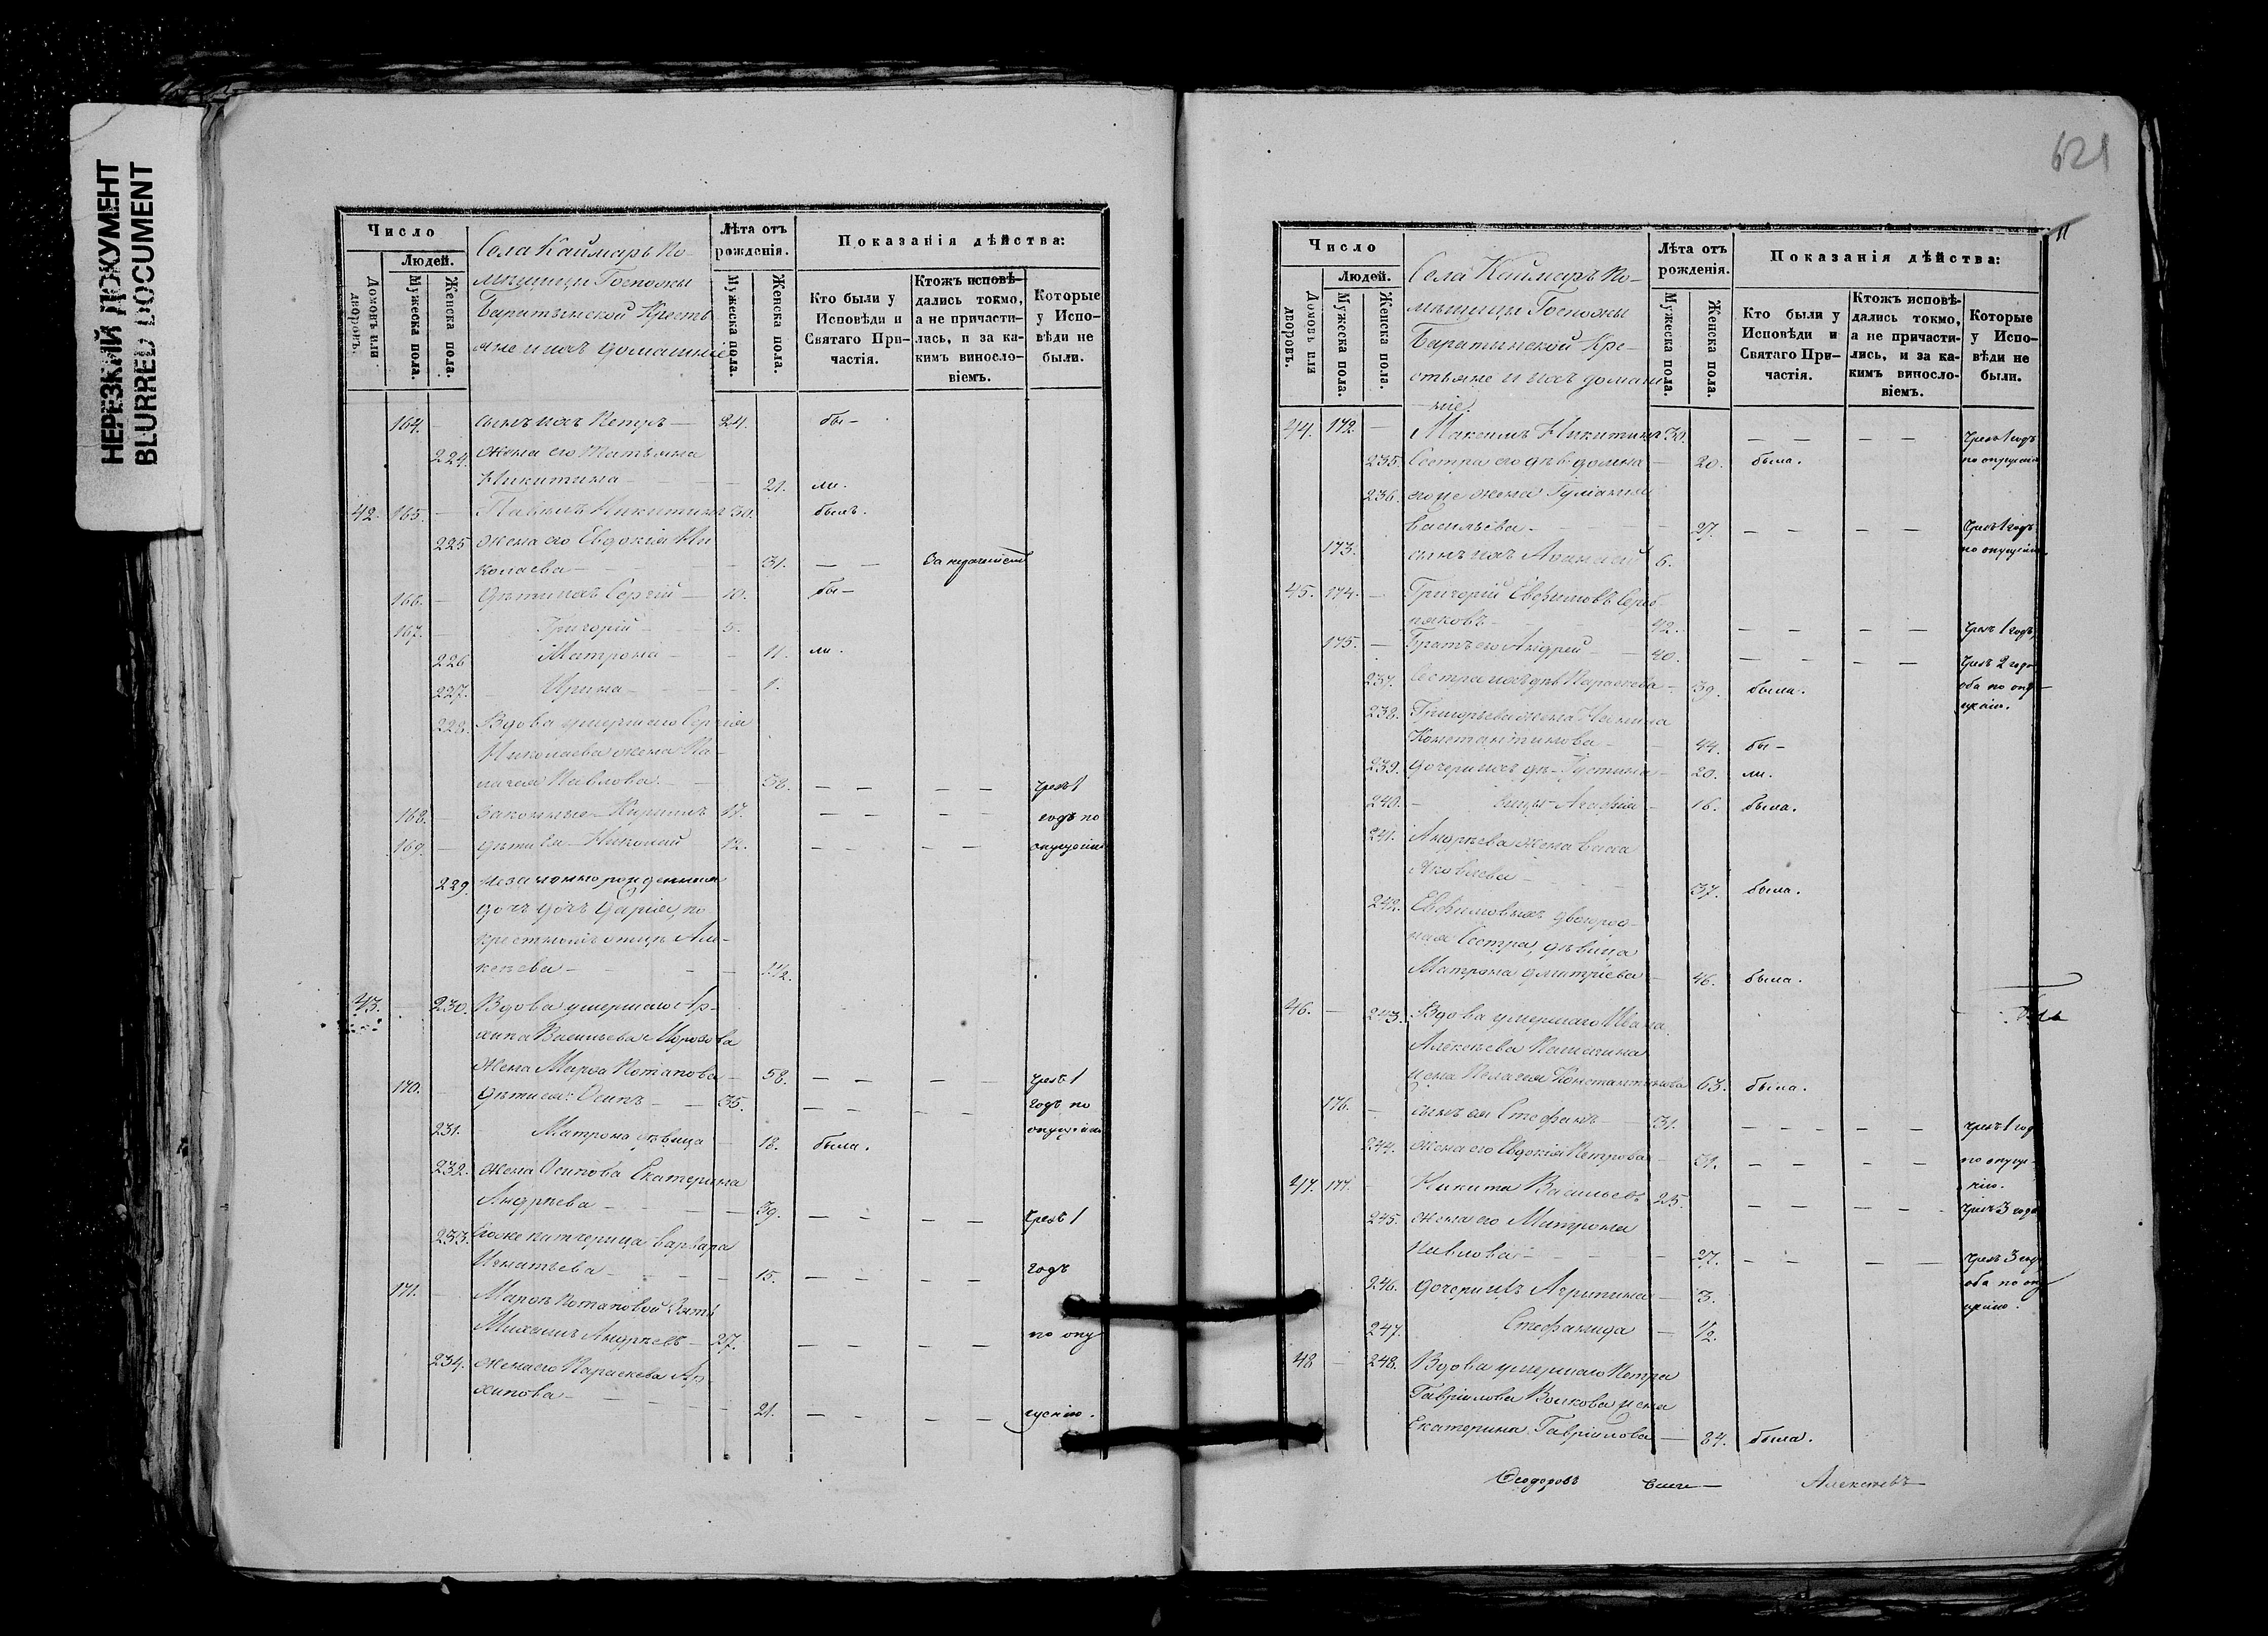 НЕРЕЗКИЙ ДОКУМЕНТ
BLURRED DOCUMENT
Число
Людей.
Домовъ или дворовъ.
Мужеска пола.
Женска пола.
Села Каймаръ По-
мѣщицы Госпожи
Баратынской Кресть
яне и ихъ домашніе
Лѣта отъ рожденія.
Мужеска пола.
Женска пола.
Показанія дѣйства:
Кто были у Исповѣди и Святаго При-частія.
Ктожъ исповѣ-дались токмо, а не причасти-лись, и за ка-кимъ винословіемъ.
Которые у Испо-вѣди не были.
164. — сынъ ихъ Петръ — 24. бы-
224. жена его Татьяна
Никитина 21. ли.
42. 165. — Павелъ Никитинъ 30. былъ.
225 жена его Евдокія Ни
колаева — 31. — —
166. — дѣти ихъ Сергій — 10. бы-
167. — Григорій — 5.
226 Матрона — 11. ли.
227. Ирина — 1.
228. Вдова умершаго Сергія
Николаева жена Пе-
лагея Павлова — 58. — — — — чрезъ 1
168. — законные Кириллъ 17. — — — — годъ по
169. — дѣти ея — Николай 12. — — — — опущенію
229. незаконно рожденная
дочь Дарія, по
крестному отцѣ Але-
ксѣева — 1 1/2.
43. — 230. Вдова умершаго Ар-
хипа Васильева Морозова
жена Марѳа Потапова — 58. — — — — чрезъ 1
170. дѣти ея: Осипъ — 35. — — — — годъ по
231. Матрона дѣвица — 18. была. опущенію
232. жена Осипова Екатерина
Андреева — 39. — — — — чрезъ 1
233. Ея же питчерица Варвара
Игнатьева — 15. — — — — годъ
171. — Марѳы Потаповой зять
Михаилъ Андреевъ — 27. — — — — по опу
234. жена его Параскева Ар-
хипова — 21. — — — — щенію.
621
11
Число
Людей.
Домовъ или дворовъ.
Мужеска пола.
Женска пола.
Села Каймаръ По-
мѣщицы Госпожи
Баратынской Кре-
стьяне и ихъ домаш
ніе.
Лѣта отъ рожденія.
Мужеска пола.
Женска пола.
Показанія дѣйства:
Кто были у Исповѣди и Святаго При-частія.
Ктожъ исповѣ-дались токмо, а не причасти-лись, и за ка-кимъ винословіемъ.
Которые у Испо-вѣди не были.
44. 172. — Максимъ Никитинъ 30. — — — — чрезъ 1 годъ
235. Сестра его дѣв. Домна — 20. была. по опущенію
236. его же жена Іуліанія
Васильева. — 27. — — — — чрезъ 1 годъ
173. сынъ ихъ Аѳанасій 6. по опущенію
45. 174. — Григорій Евфимовъ Сереб
ряковъ — 42. — — — — чрезъ 1 годъ,
175. — Братъ его Андрей — 40. — — — — чрезъ 2 года
237. Сестра ихъ дѣв. Параскева — 39. была. оба по опу-
238. Григорьева жена щенію.
Константинова — 44. бы-
239. дочери ихъ дѣ- Іустина — 20. ли.
240. вицы Агафія — 16. была.
241. Андреева жена Васса
Яковлева — 37. была.
242. Евфимовыхъ двоюрод-
ная Сестра, дѣвица
Матрона Дмитріева — 46. была.
46. — 243. Вдова умершаго
Алексѣева
жена Пелагея Константинова 63. была.
176. — сынъ ея Стефанъ — 31. — — — — чрезъ 1 год
244. жена его Евдокія Петрова — 31. — — — — по опуще-
47. 177. — Никита Васильевъ 25. — — — — нію.
чрезъ 3 года
245. жена его Матрона
Павлова — 27. — — — — чрезъ 3 года
246. дочери ихъ Агрипина — 3. оба по опу
247. Стефанида — 1/2. щенію.
48 — 248. Вдова умершаго Петра
Гавріилова Волкова жена
Екатерина Гавріилова — 84. была.
Ѳеодоровъ Алексѣевъ